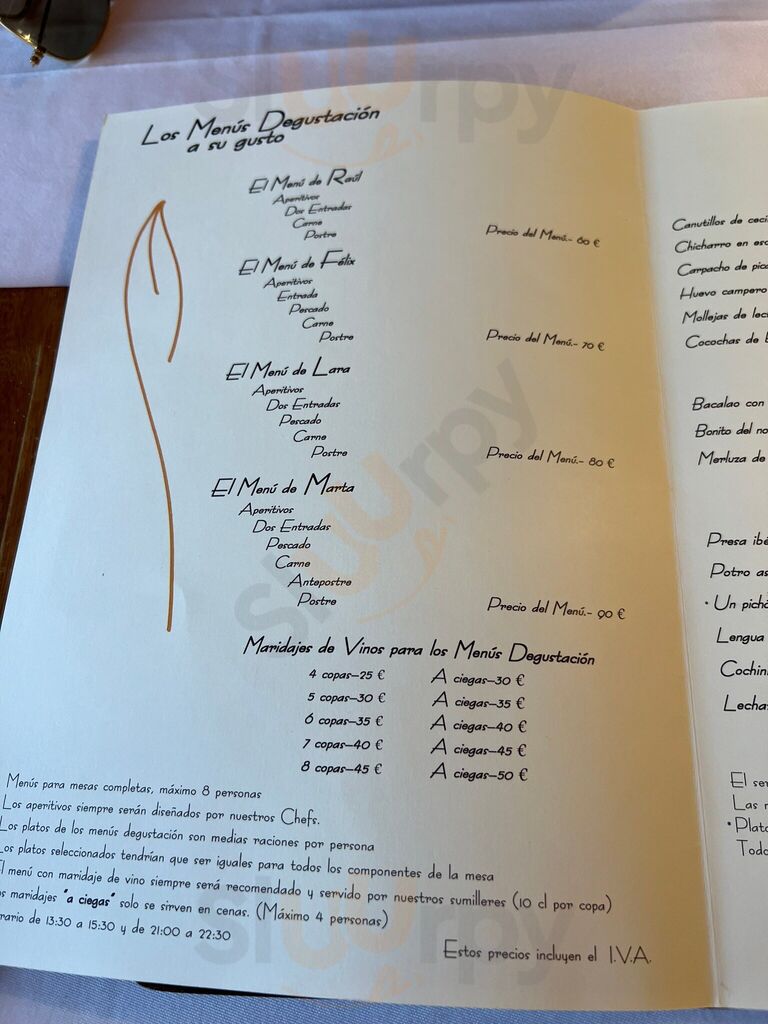 Los Menús Degustación
a su gusto
El Menú de Raúl
Aperitivos
Dos Entradas
Carne
Postre
Precio del Menú.- 60 €
El Menú de Félix
Aperitivos
Entrada
Pescado
Carne
Postre
Precio del Menú.- 70 €
El Menú de Lara
Aperitivos
Dos Entradas
Pescado
Carne
Postre
Precio del Menú.- 80 €
El Menú de Marta
Aperitivos
Dos Entradas
Pescado
Carne
Antepostre
Postre
Precio del Menú.- 90 €
Maridajes de Vinos para los Menús Degustación
4 copas—25 € A ciegas—30 €
5 copas—30 € A ciegas—35 €
6 copas—35 € A ciegas—40 €
7 copas—40 € A ciegas—45 €
8 copas—45 € A ciegas—50 €
Menús para mesas completas, máximo 8 personas
Los aperitivos siempre serán diseñados por nuestros Chefs.
Los platos de los menús degustación son medias raciones por persona
Los platos seleccionados tendrían que ser iguales para todos los componentes de la mesa
El menú con maridaje de vino siempre será recomendado y servido por nuestros sumilleres (10 cl por copa)
maridajes "a ciegas" solo se sirven en cenas. (Máximo 4 personas)
de 13:30 a 15:30 y de 21:00 a 22:30
Estos precios incluyen el I.V.A.
Canutillos de
Chicharro en
Carpacho de
Huevo campero
Mollejas de
Cocochas de
Bacalao con
Bonito del
Merluza de
Presa
Potro
· Un
Lengua
El
Las
sluurpy
sluurpy
sluurpy